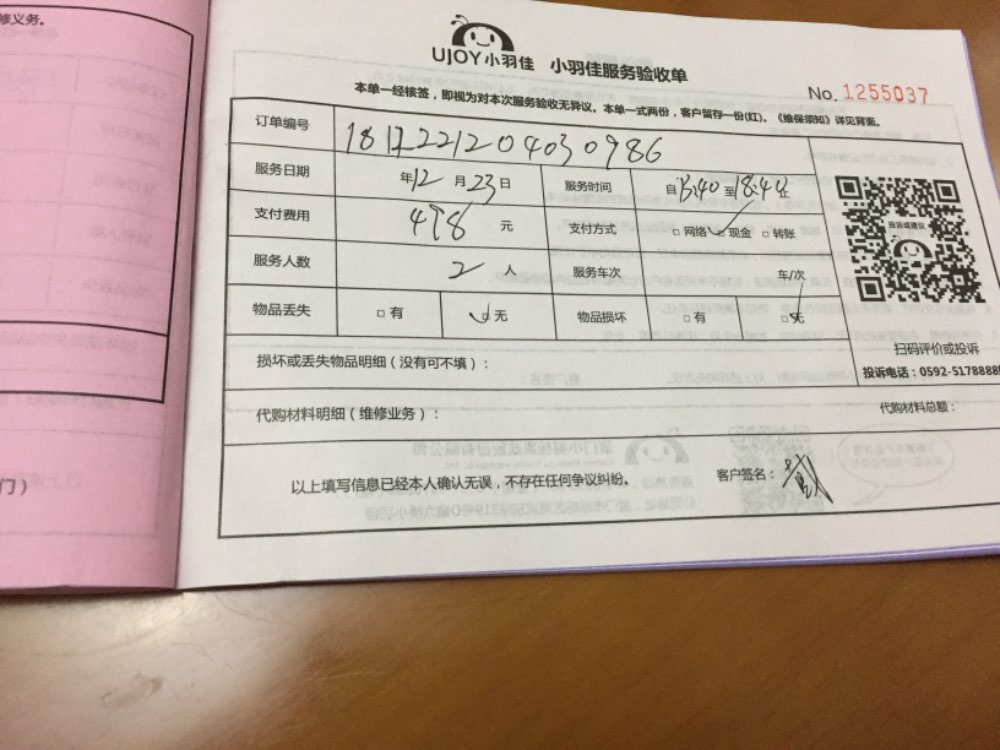 修义务。
UJOY小羽佳 小羽佳服务验收单
No. 1255037
本单一经核签，即视为对本次服务验收无异议。本单一式两份，客户留存一份(红)。《维保须知》详见背面。
订单编号 1812221204030986
服务日期 年12月23日 服务时间 自15:40至18:44止
支付费用 498元 支付方式 □网络 □现金 □转账
服务人数 2人 服务车次 车/次
物品丢失 □有 □无 物品损坏 □有 □无
投诉或建议
扫码评价或投诉
投诉电话：0592-5178888
损坏或丢失物品明细（没有可不填）：
代购材料明细（维修业务）： 代购材料总额：
以上填写信息已经本人确认无误，不存在任何争议纠纷。 客户签名：
门）